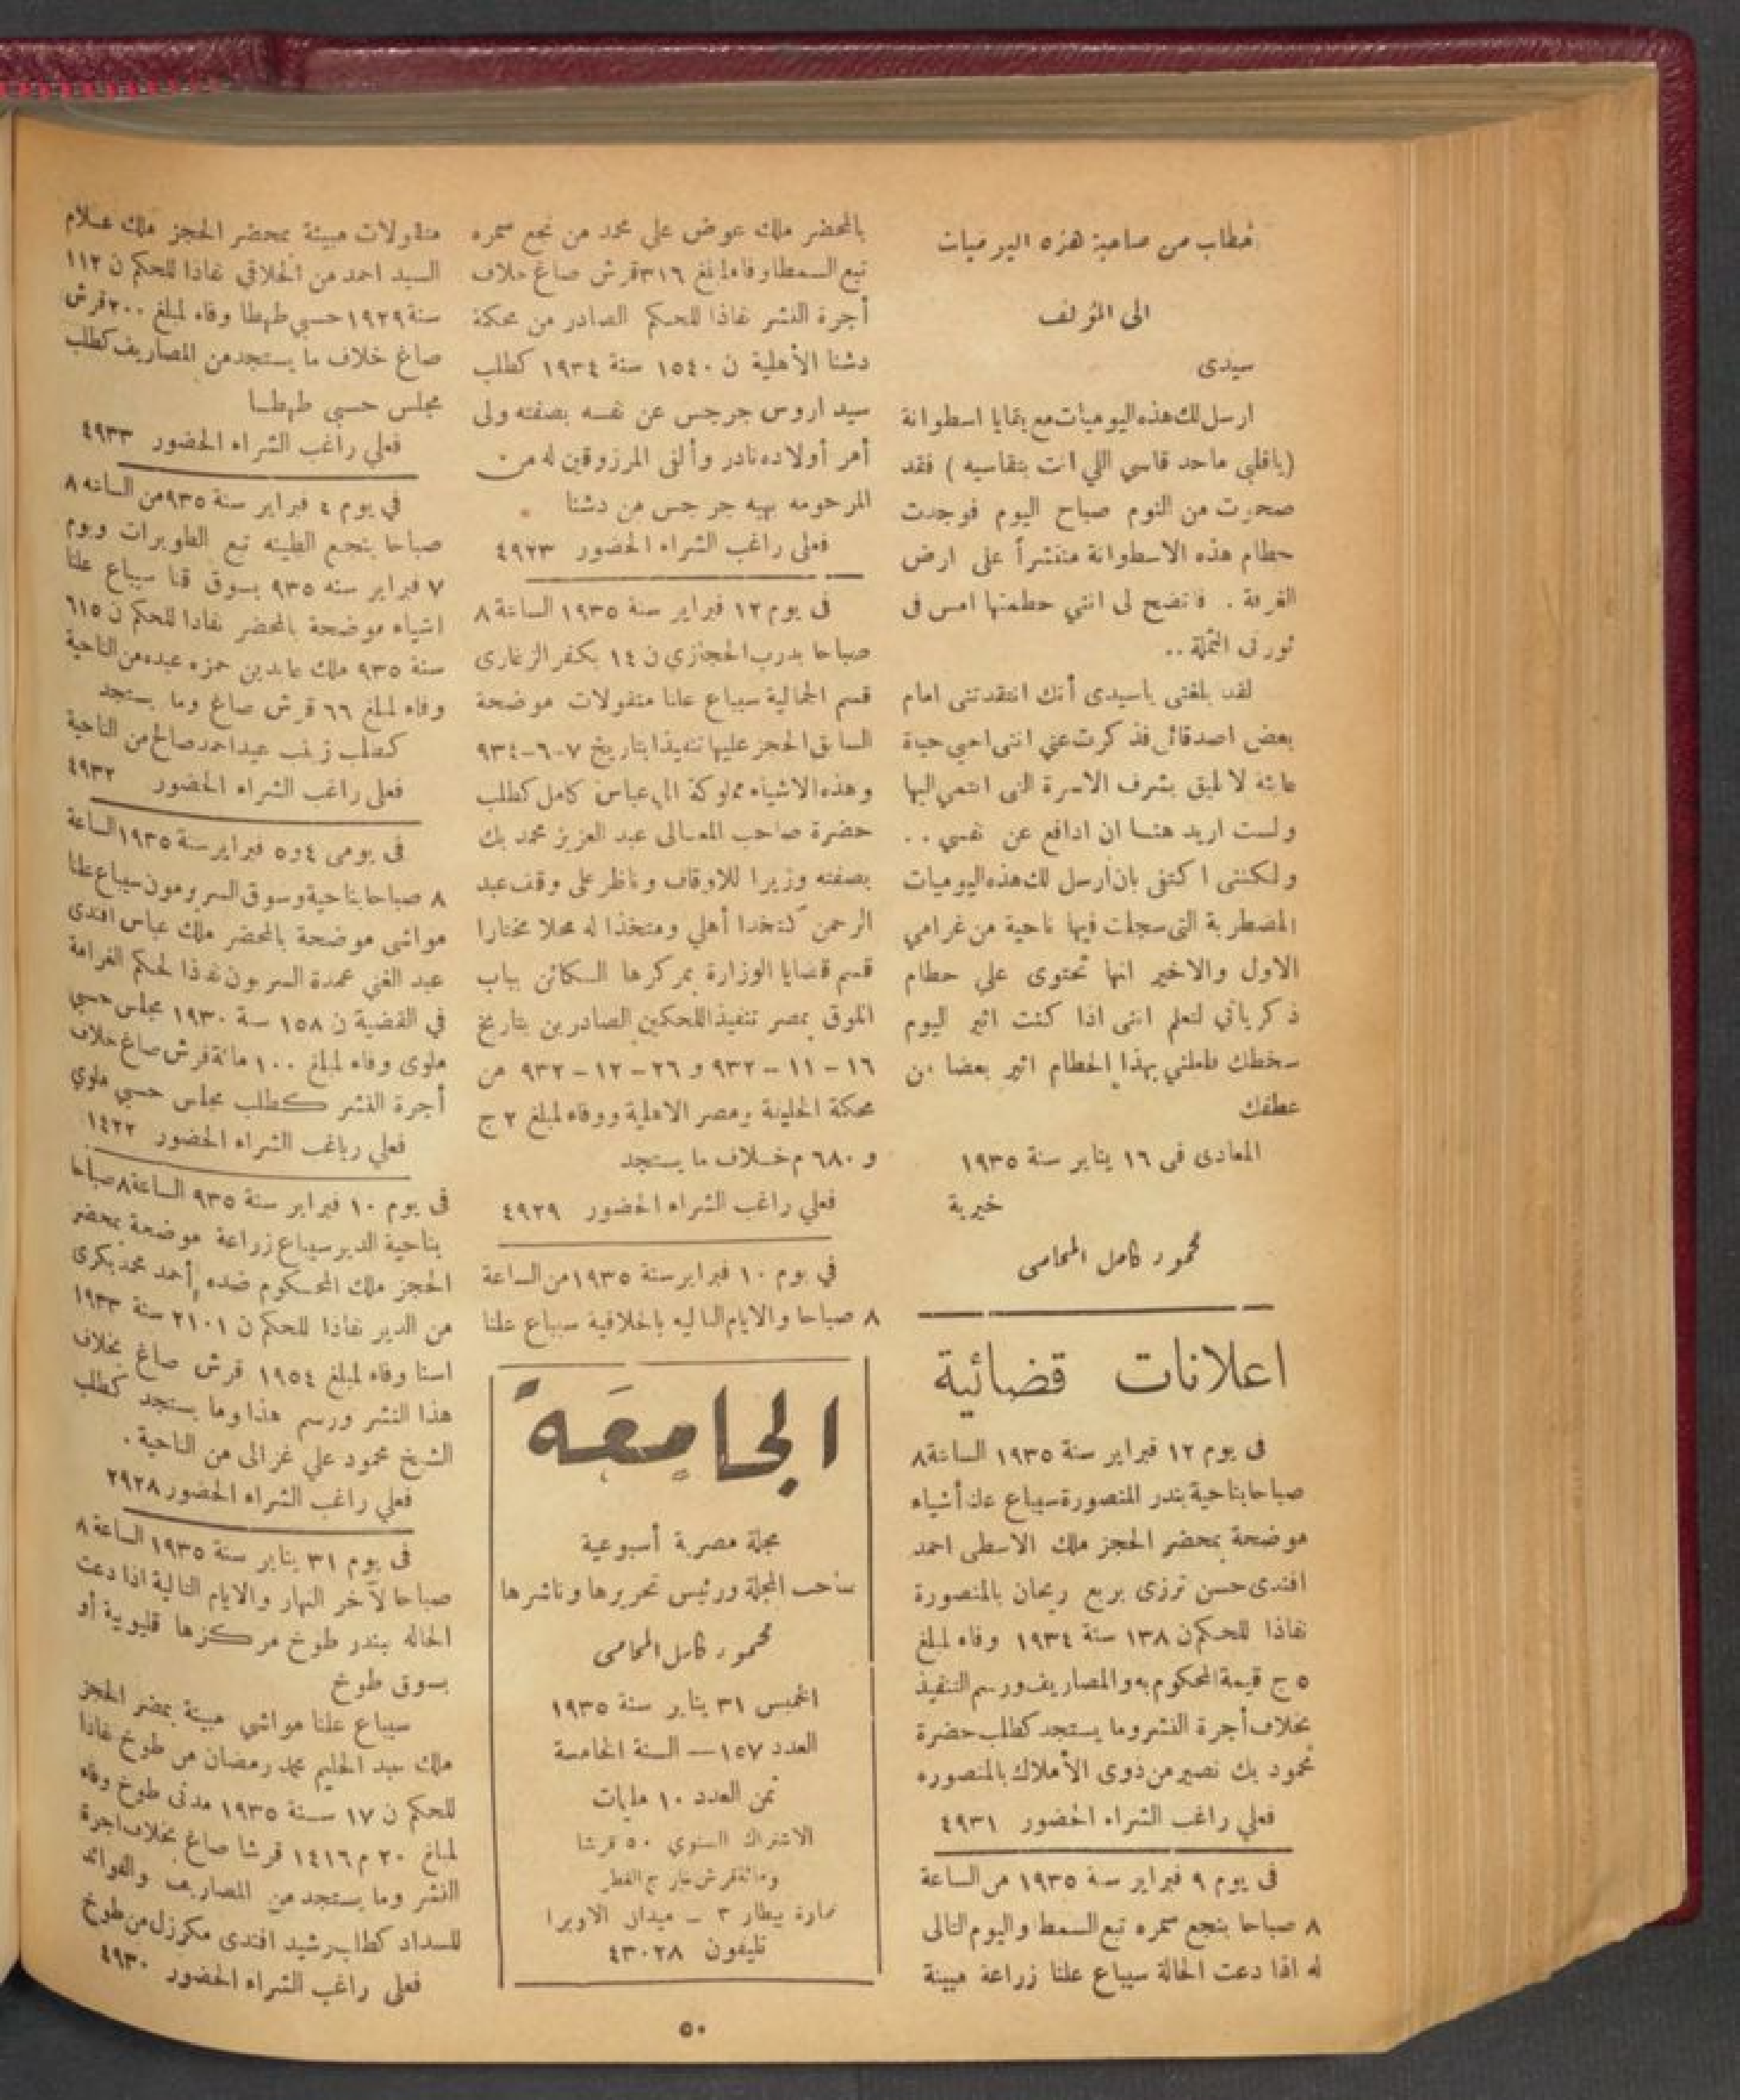 خطاب من صاحبة هذه اليوميات
الى المؤلف
سيدى
ارسل لك هذه اليوميات مع بقايا اسطوانة
(ياقلبي ماحد قاسي اللي انت بتقاسيه) فقد
صحوت من النوم صباح اليوم فوجدت
حطام هذه الاسطوانة منتشراً على ارض
الغرفة . فاتضح لى انني حطمتها امس فى
ثورتى الثملة ..
لقد بلغنى ياسيدى أنك انتقدتنى امام
بعض اصدقائى فذكرت عني اننى احيى حياة
عابثة لا تليق بشرف الاسرة التى انتمى اليها
ولست اريد هنا ان ادافع عن نفسي . .
ولكننى اكتفى بان ارسل لك هذه اليوميات
المضطربة التى سجلت فيها ناحية من غرامي
الاول والاخير انها تحتوى علي حطام
ذكرياتي لتعلم اننى اذا كنت اثير اليوم
سخطك فلعلني بهذا الحطام اثير بعضا من
عطفك
المعادى فى ١٦ يناير سنة ١٩٣٥
خيرية
محمود كامل المحامى
اعلانات قضائية
فى يوم ١٢ فبراير سنة ١٩٣٥ الساعة ٨
صباحا بناحية بندر المنصورة سيباع علنا أشياء
موضحة بمحضر الحجز ملك الاسطى احمد
افندى حسن ترزى بربع ريحان بالمنصورة
نفاذا للحكم ن ١٣٨ سنة ١٩٣٤ وفاء لمبلغ
٥ ج قيمة المحكوم به والمصاريف ورسم التنفيذ
بخلاف أجرة النشر وما يستجد كطلب حضرة
محمود بك نصير من ذوى الأملاك بالمنصوره
فعلي راغب الشراء الحضور ٤٩٣١
فى يوم ٩ فبراير سنة ١٩٣٥ من الساعة
٨ صباحا بنجع سمره تبع السمطا واليوم التالى
له اذا دعت الحالة سيباع علنا زراعة مبينة
بالمحضر ملك عوض علي محمد من نجع سمره
تبع السمطا وفاء لمبلغ ٣١٦ قرش صاغ خلاف
أجرة النشر نفاذا للحكم الصادر من محكمة
دشنا الأهلية ن ١٥٤٠ سنة ١٩٣٤ كطلب
سيد اروس جرجس عن نفسه بصفته ولى
أمر أولاده نادر وألفى المرزوقين له من
المرحومه بهيه جرجس من دشنا
فعلى راغب الشراء الحضور ٤٩٢٣
فى يوم ١٢ فبراير سنة ١٩٣٥ الساعة ٨
صباحا بدرب الحجازي ن ١٤ بكفر الزغارى
قسم الجمالية سيباع علنا منقولات موضحة
السابق الحجز عليها تنفيذا بتاريخ ٧-٦-٩٣٤
وهذه الاشياء مملوكة الى عباس كامل كطلب
حضرة صاحب المعالى عبد العزيز محمد بك
بصفته وزيرا للاوقاف وناظر على وقف عبد
الرحمن كتخدا أهلي ومتخذا له محلا مختارا
قسم قضايا الوزارة بمركزها الكائن بباب
اللوق بمصر تنفيذا للحكمين الصادرين بتاريخ
١٦ - ١١ - ٩٣٢ و ٢٦ - ١٢ - ٩٣٢ من
محكمة الخليفة ومصر الاهلية ووفاء لمبلغ ٢ ج
و ٦٨٠ م خلاف ما يستجد
فعلي راغب الشراء الحضور ٤٩٢٩
في يوم ١٠ فبراير سنة ١٩٣٥ من الساعة
٨ صباحا والايام التاليه بالخلافية سيباع علنا
الجامعة
مجلة مصرية أسبوعية
صاحب المجلة ورئيس تحريرها وناشرها
محمود كامل المحامى
الخميس ٣١ يناير سنة ١٩٣٥
العدد ١٥٧ — السنة الخامسة
ثمن العدد ١٠ مليمات
الاشتراك السنوي ٥٠ قرشا
ومائة قرش خارج القطر
عمارة بيطار ٣ - ميدان الاوبرا
تليفون ٤٣٠٢٨
منقولات مبينة بمحضر الحجز ملك علام
السيد احمد من الخلافي نفاذا للحكم ن ١١٢
سنة ١٩٢٩ حسبي طهطا وفاء لمبلغ ٢٠٠ قرش
صاغ خلاف ما يستجد من المصاريف كطلب
مجلس حسبي طهطا
فعلي راغب الشراء الحضور ٤٩٣٣
في يوم ٤ فبراير سنة ٩٣٥ من الساعه ٨
صباحا بنجع الطينه تبع الطويرات ويوم
٧ فبراير سنه ٩٣٥ بسوق قنا سيباع علنا
اشياء موضحة بالمحضر نفاذا للحكم ن ٦١٥
سنة ٩٣٥ ملك عابدين حمزه عبده من الناحية
وفاء لمبلغ ٦٦ قرش صاغ وما يستجد
كطلب زينب عيد احمد صالح من الناحية
فعلى راغب الشراء الحضور ٤٩٣٢
فى يومى ٤ و ٥ فبراير سنة ١٩٣٥ الساعة
٨ صباحا بناحية وسوق السريرمون سيباع علنا
مواشى موضحة بالمحضر ملك عباس افندى
عبد الغني عمدة السربون نفاذا لحكم الغرامة
في القضية ن ١٥٨ سنة ١٩٣٠ مجلس حسبي
ملوى وفاء لمبلغ ١٠٠ مائة قرش صاغ خلاف
أجرة النشر كطلب مجلس حسبي ملوي
فعلي رباغب الشراء الحضور ١٤٢٢
فى يوم ١٠ فبراير سنة ٩٣٥ الساعة ٨ صباحا
بناحية الدير سيباع زراعة موضحة بمحضر
الحجز ملك المحكوم ضده أحمد محمد بكرى
من الدير نفاذا للحكم ن ٢١٠١ سنة ١٩٣٣
اسنا وفاء لمبلغ ١٩٥٤ قرش صاغ بخلاف
هذا النشر ورسم هذا وما يستجد كطلب
الشيخ محمود علي غزالى من الناحية .
فعلي راغب الشراء الحضور ٢٩٢٨
فى يوم ٣١ يناير سنة ١٩٣٥ الساعة ٨
صباحا لآخر النهار والايام التالية اذا دعت
الحاله ببندر طوخ مركزها قليوبية أو
بسوق طوخ
سيباع علنا مواشي مبينة بمضر الحجز
ملك عبد الحليم محمد رمضان من طوخ نفاذا
للحكم ن ١٧ سنة ١٩٣٥ مدنى طوخ وفاء
لمبلغ ٢٠ م ١٤١٦ قرشا صاغ بخلاف اجرة
النشر وما يستجد من المصاريف والفوائد
للسداد كطلب رشيد افندى مكرزل من طوخ
فعلى راغب الشراء الحضور ٤٩٣٠
٥٠